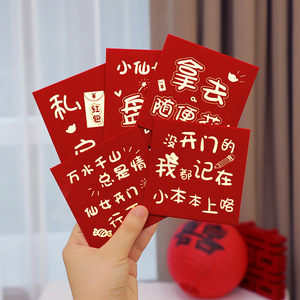 私
红包
小仙女
拿去
随便花
万水千山
总是情
仙女开门
行
没开门的
我都记在
小本本上咯
囍